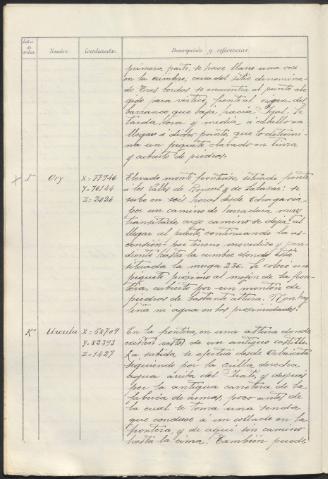 Nombre Coordenadas Descripción y referencias
primera parte, se hace llano una vez
en la cumbre, cerca del sitio denomina-
do Tres Cordas se encuentra el punto ele-
gido para vértice, frente al
barranco que baja hacia Se
tarda hora y media a caballo en
llegar a dicho punto, que lo determi-
na un piquete clavado en tierra
y cubierto de piedras.
5 Ory X=77746 Elevado monte fronterizo situado frente
Y=76144 a los valles de y de Salazar: se
Z=2026 sube en seis horas desde Ochagavia
por un camino de herradura muy
transitado cuyo camino se deja al
llegar al puerto, continuando la as-
censión por terreno movedizo y pen-
diente hasta la cumbre donde está
situada la muga 236. Se colocó un
piquete próximo al mojón de la fron-
tera, cubierto por un montón de
piedras de bastante altura. No hay
leña ni agua en las proximidades.
Urcula X=58709 En la frontera, en una altura donde
Y=82393 existen restos de un antiguo castillo.
Z=1427 La subida se efectúa desde Orbaiceta
siguiendo por la orilla derecha
aguas arriba del Irati, y después
por la antigua carretera de la
fábrica de armas, poco antes de
la cual se toma una senda
que conduce a un collado en la
frontera, y de aquí sin camino
hasta la cima. También puede